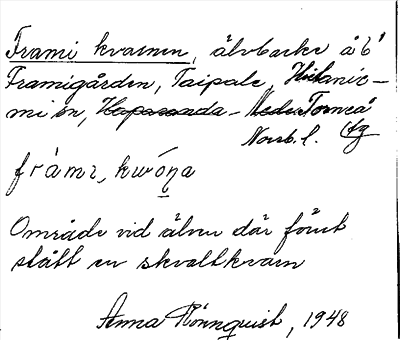 Frami kvarnen, älvbacke å b'
Framigården, Taipale, Hietanie-
mi sn, Haparanda - Neder Torneå
Norrb. l.
fràmɪ, kwɷ́ɳa
Område vid älven där förut
stått en skvaltkvarn
Anna Rönnquist, 1948